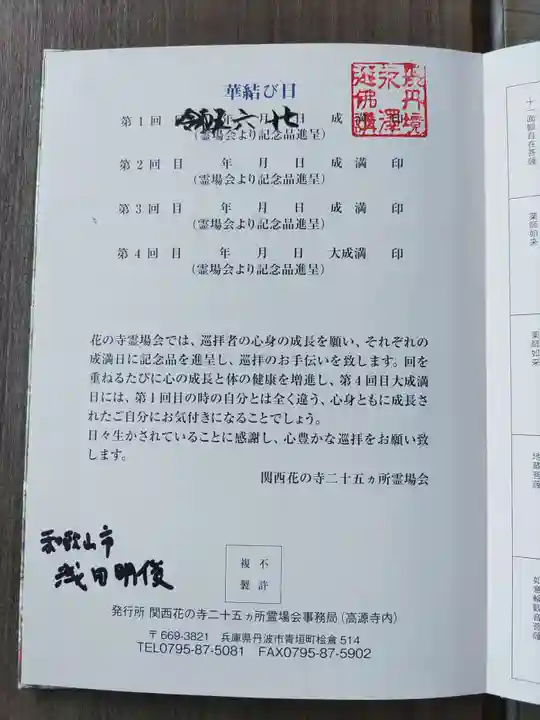 華結び日
第1回 令和五年六月十七日 成満 印
(霊場会より記念品進呈)
第2回 目 年 月 日 成 満 印
(霊場会より記念品進呈)
第3回 目 年 月 日 成 満 印
(霊場会より記念品進呈)
第4回 目 年 月 日 大成満 印
(霊場会より記念品進呈)
花の寺霊場会では、巡拝者の心身の成長を願い、それぞれの
成満日に記念品を進呈し、巡拝のお手伝いを致します。回を
重ねるたびに心の成長と体の健康を増進し、第4回目大成満
日には、第1回目の時の自分とは全く違う、心身ともに成長さ
れたご自分にお気付きになることでしょう。
日々生かされていることに感謝し、心豊かな巡拝をお願い致
します。
関西花の寺二十五ヵ所霊場会
和歌山市
浅田明俊
不許
複製
発行所 関西花の寺二十五ヵ所霊場会事務局(高源寺内)
〒669-3821 兵庫県丹波市青垣町桧倉514
TEL0795-87-5081 FAX0795-87-5902
十一面観自在菩薩
薬師如来
薬師如来
地蔵菩薩
如意輪観音菩薩